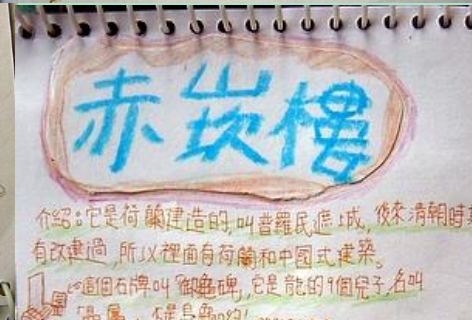 赤崁樓
介紹:它是荷蘭建造的,叫普羅民遮城,後來清朝時
有改建過,所以裡面有荷蘭和中國式建築。
這個石碑叫御龜碑,它是龍的9個兒子,名叫